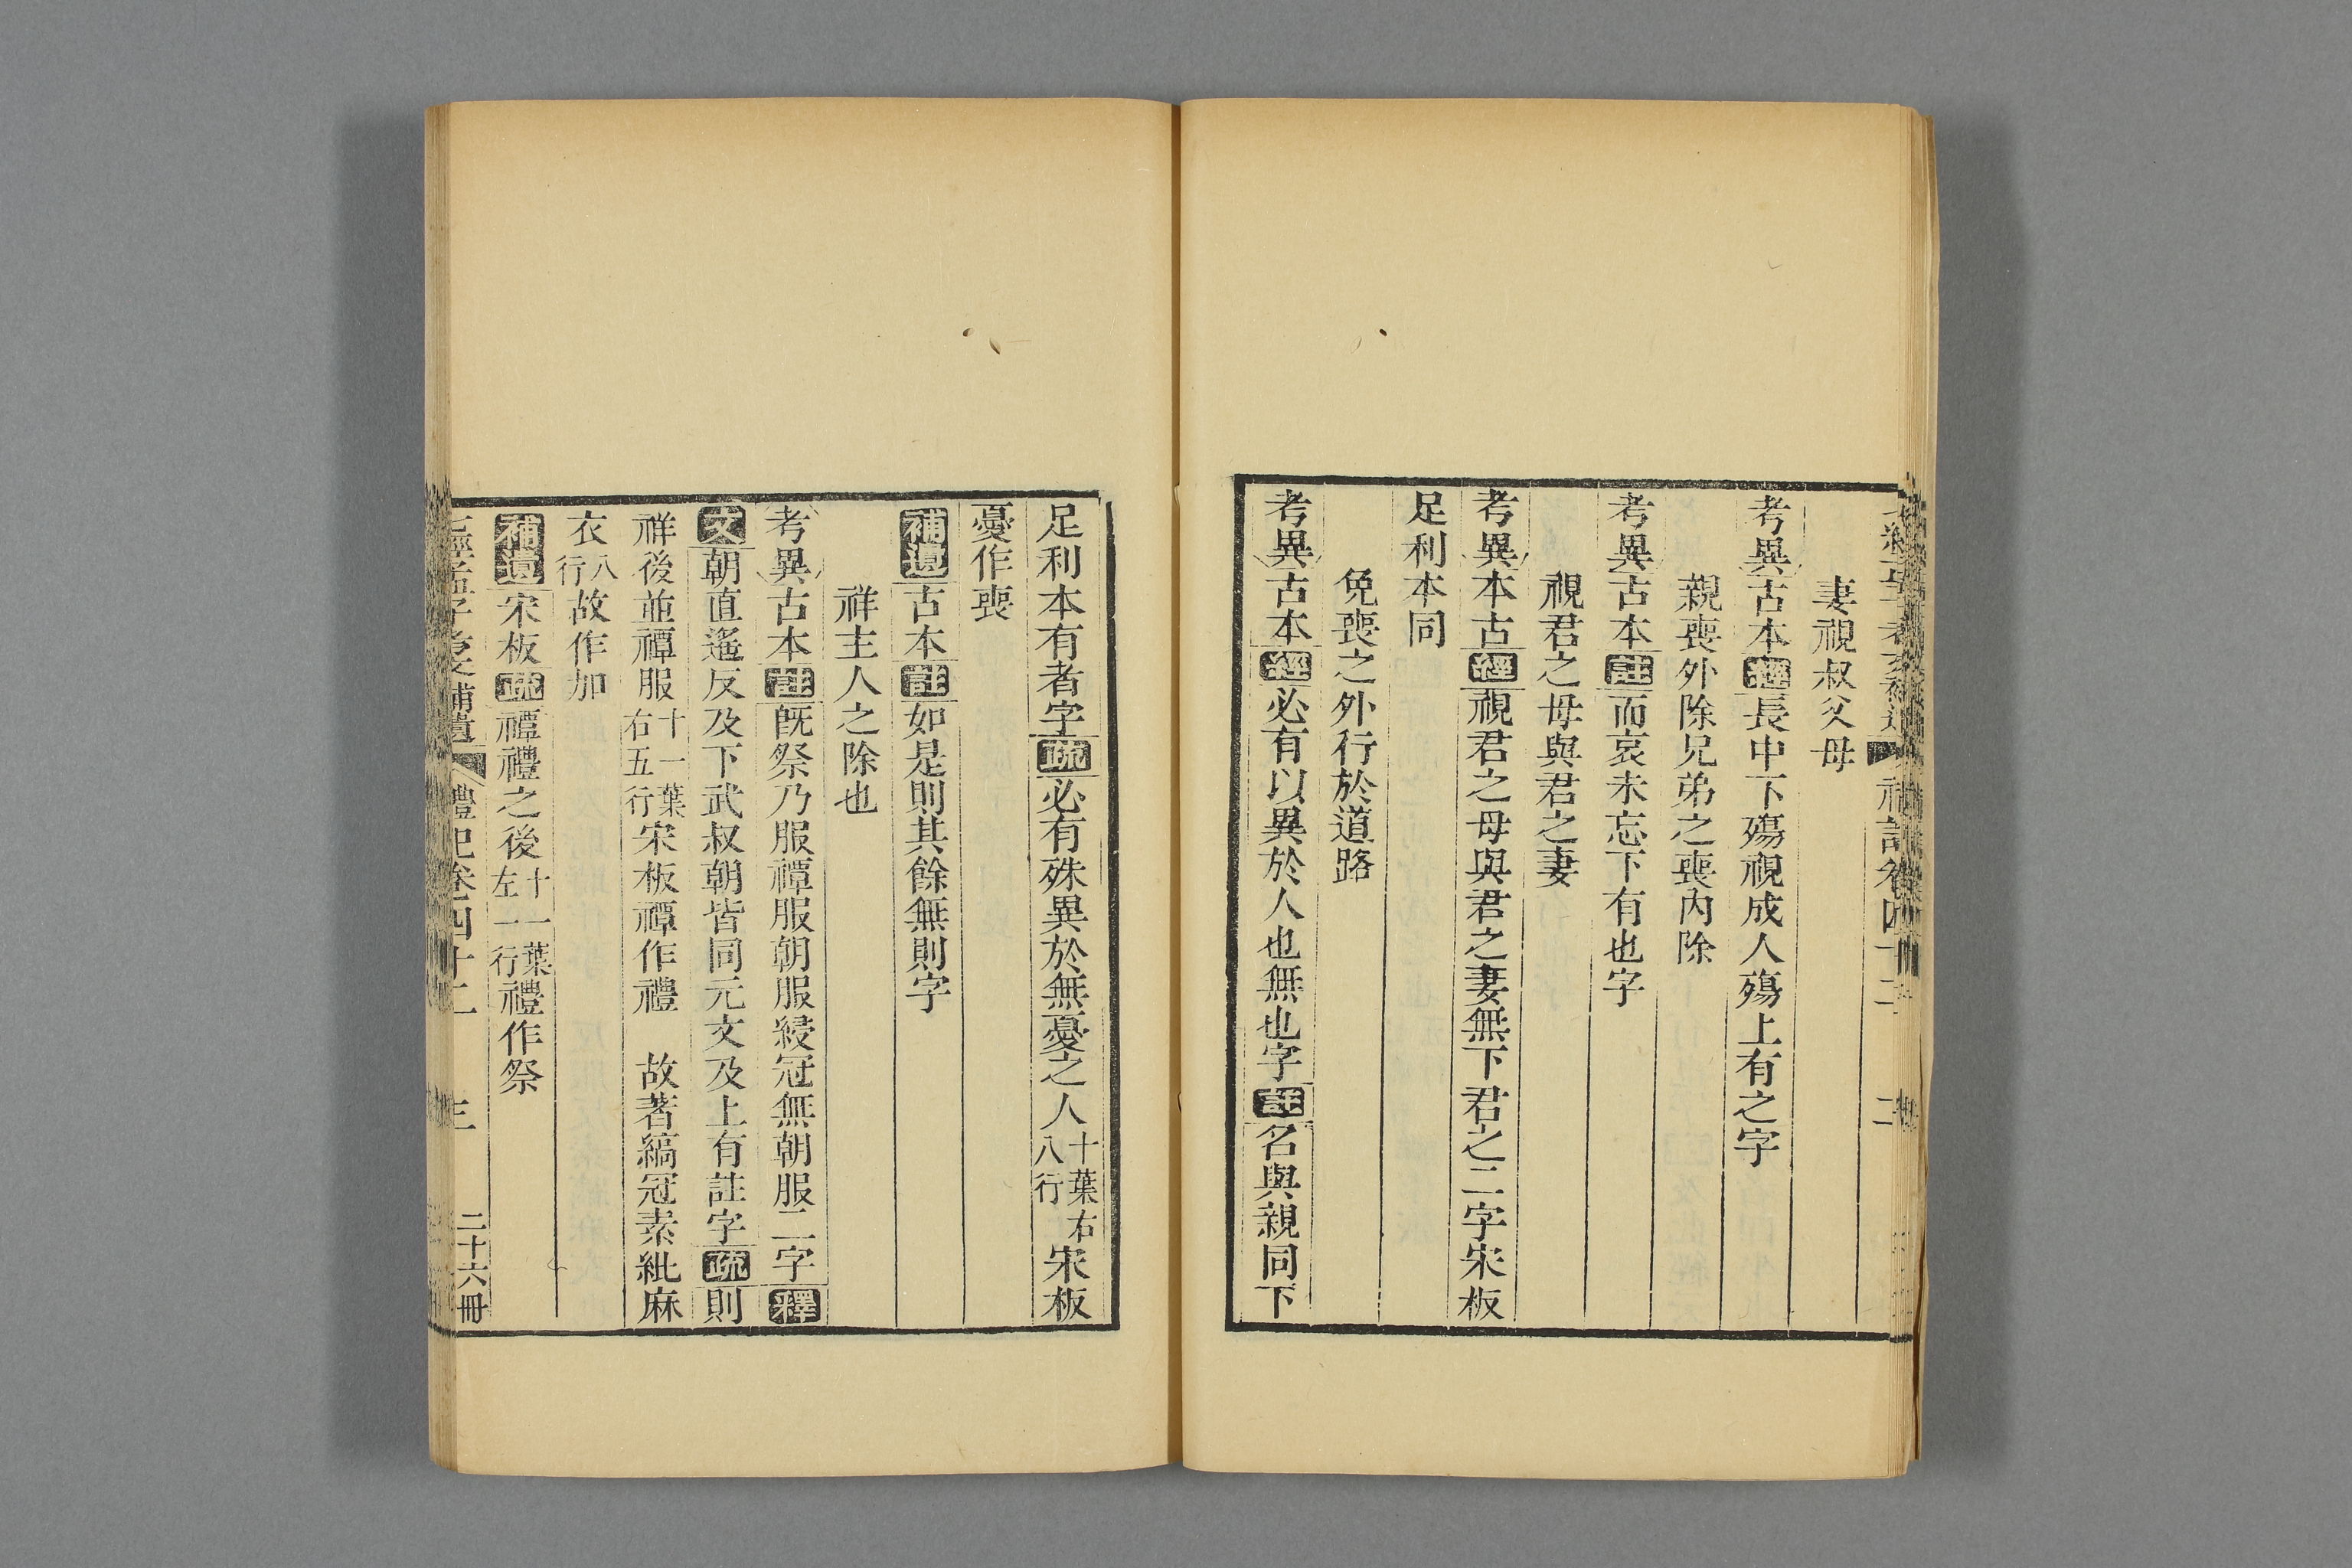 妻視叔父母
考異古本經長中下殤視成人殤上有之字
親喪外除兄弟之喪內除
考異古本註而哀未忘下有也字
視君之母與君之妻
考異本古經視君之母與君之妻無下君之二字宋板
足利本同
免喪之外行於道路
考異古本經必有以異於人也無也字註名與親同下
足利本有者字疏必有殊異於無憂之人十葉右八行宋板
憂作喪
補遺古本註如是則其餘無則字
祥主人之除也
考異古本註既祭乃服禫服朝服綅冠無朝服二字釋
文朝直遙反及下武叔朝皆同元文及上有註字疏則
祥後並禫服十一葉右五行宋板禫作禮　故著縞冠素紕麻
衣八行故作加
補遺宋板疏禫禮之後十一葉左一行禮作祭
七經孟子考文補遺 禮記卷四十二 三 二十六冊